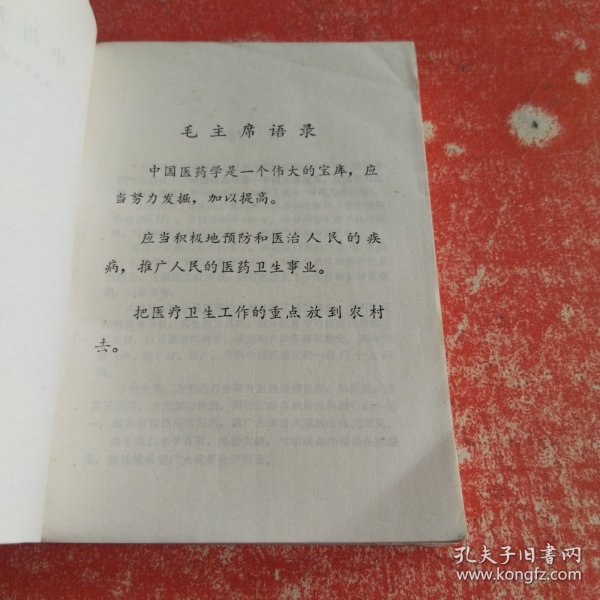 中药
毛主席语录
中国医药学是一个伟大的宝库，应
当努力发掘，加以提高。
应当积极地预防和医治人民的疾
病，推广人民的医药卫生事业。
把医疗卫生工作的重点放到农村
去。
孔夫子旧书网
www.kongfz.com